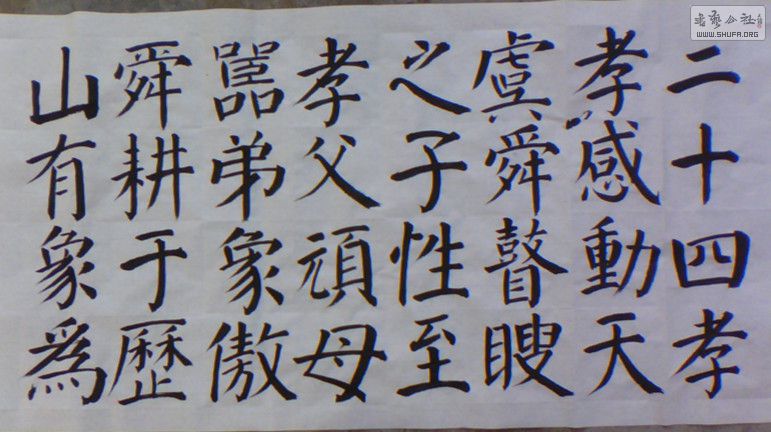 二十四孝
孝感動天
虞舜瞽瞍
之子性至
孝父頑母
嚚弟象傲
舜耕于歷
山有象為
書藝公社
WWW.SHUFA.ORG